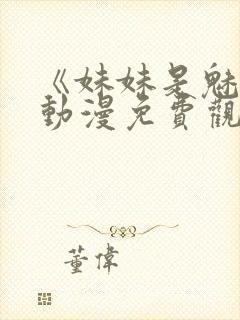 《妹妹是魅
動漫免費觀
董偉